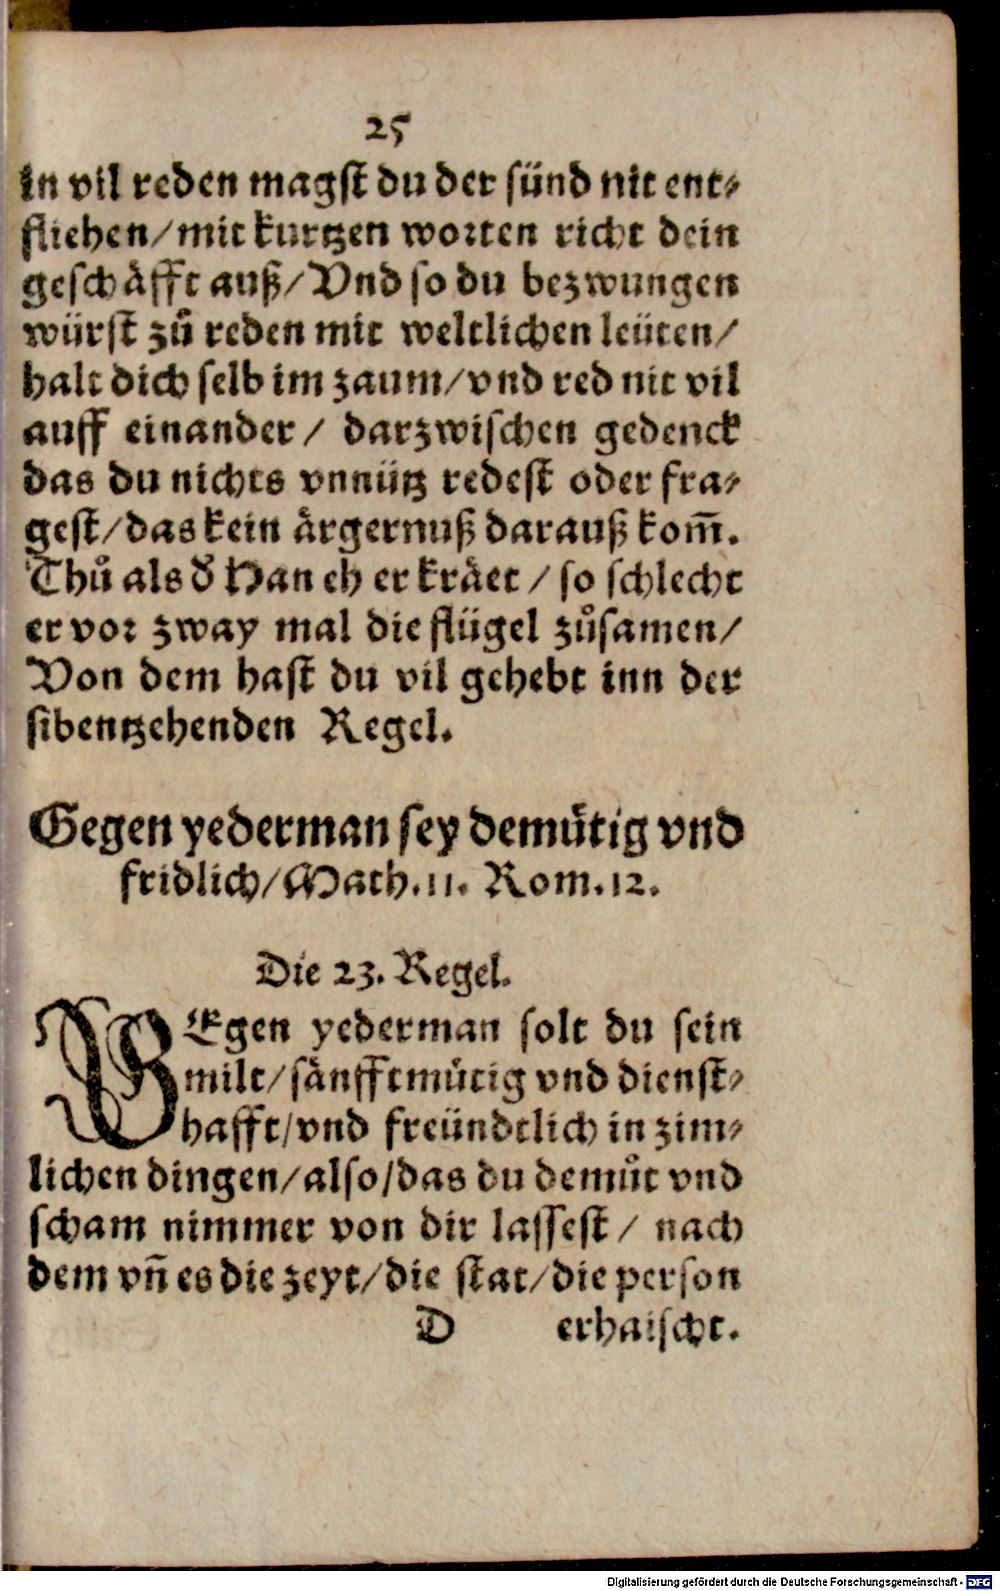 25
in vil reden magſt du der ſünd nit ent⸗
fliehen/mit kurtzen worten richt dein
geſchäfft auß/Vnd ſo du bezwungen
würſt zů reden mit weltlichen leüten/
halt dich ſelb im zaum/vnd red nit vil
auff einander/ darzwiſchen gedenck
das du nichts vnnütz redeſt oder fra⸗
geſt/das kein ärgernuß darauß kom̄.
Thů als d̕ Han eh er kräet/ſo ſchlecht
er vor zway mal die flügel zůſamen/
Von dem haſt du vil gehebt inn der
ſibentzehenden Regel.
Gegen yederman ſey demütig vnd
fridlich/Math.11. Rom.12.
Die 23. Regel.
GEgen yederman ſolt du ſein
milt/ſänfftmütig vnd dienſt⸗
hafft/vnd freündtlich in zim⸗
lichen dingen/alſo/das du demůt vnd
ſcham nimmer von dir laſſeſt/ nach
dem vn̄ es die zeyt/die ſtat/die perſon
D erhaiſcht.
Digitalisierung gefördert durch die Deutsche Forschungsgemeinschaft - DFG